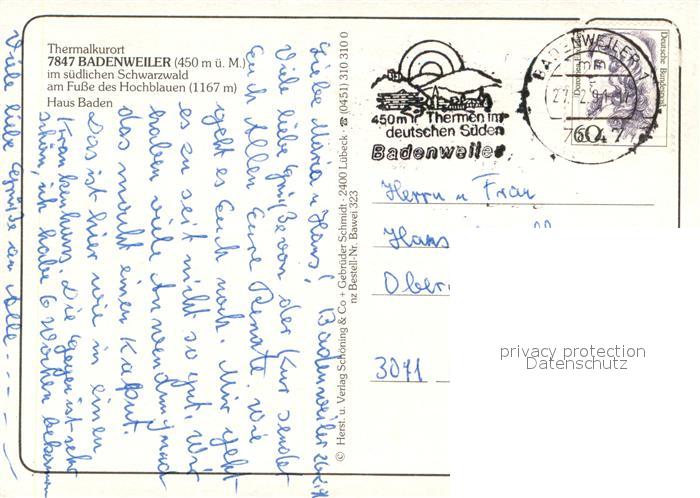 Thermalkurort
7847 BADENWEILER (450 m ü. M.)
im südlichen Schwarzwald
am Fuße des Hochblauen (1167 m)
Haus Baden
Liebe Maria u. Hans! Badenweiler
Viele liebe Grüße von der Kur sendet
Euch Allen Eure Renate. Wie
geht es Euch noch. Mir geht
es zu seit nicht so gut. Wir
haben viele Anwendung und
das macht einen Kaput.
Das ist hier wie in einen
Krankenhaus. Die Gegend ist sehr
schön, ich habe 6 Wochen bekommen
Viele liebe Grüße an Alle - - - -
© Herst. u. Verlag Schöning & Co + Gebrüder Schmidt · 2400 Lübeck · ☎ (0451) 310 310 0
nz Bestell-Nr. Bawei 323
450 m Thermen im
deutschen Süden
Badenweiler
BADENWEILER 1
7847
Deutsche Bundespost
60
Herrn u Frau
Hans
Ober
3071
privacy protection
Datenschutz